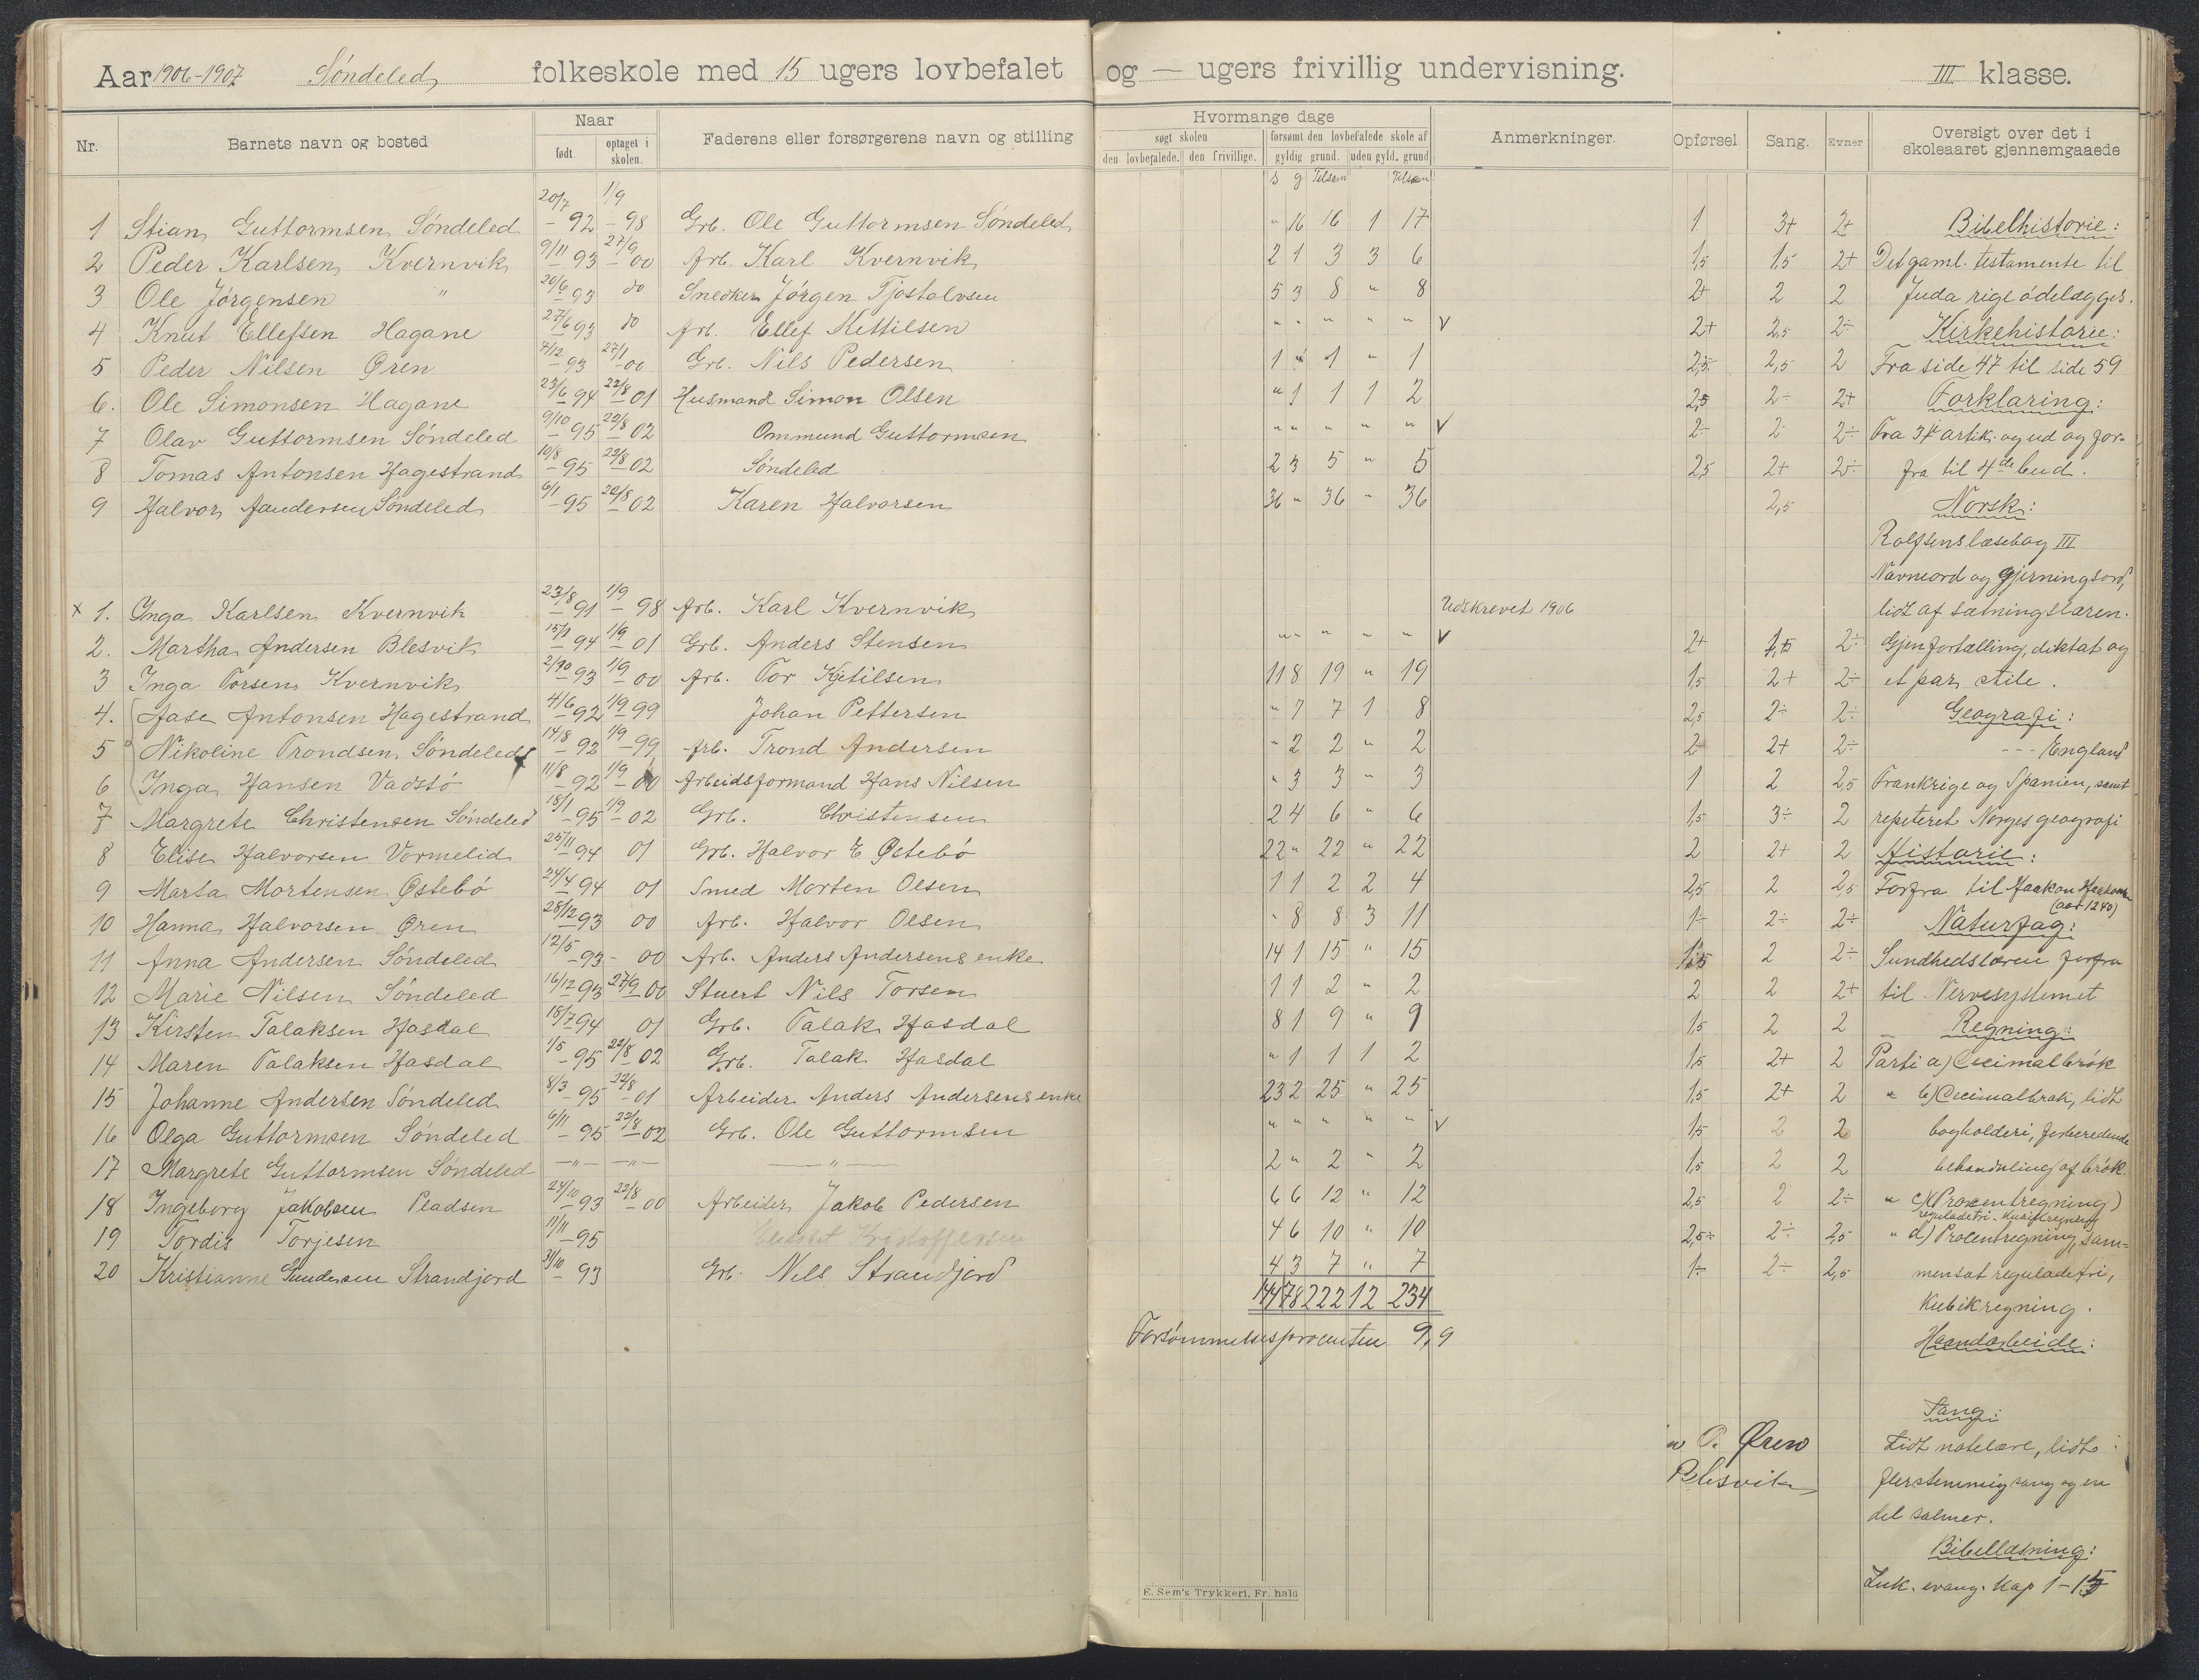 Aar 1906-1907 Söndeled folkeskole med 15 ugers lovbefalet og — ugers frivillig undervisning. III klasse.
Nr. Barnets navn og bosted Naar født. optaget i skolen. Faderens eller forsørgerens navn og stilling Hvormange dage søgt skolen den lovbefalede. den frivillige. forsømt den lovbefalede skole af gyldig grund. uden gyld. grund Anmerkninger. Opførsel Sang. Evner Oversigt over det i skoleaaret gjennemgaaede
s g Tilsam Tilsam
1 Stian Guttormsen Söndeled 20/7 92 1/9 98 Grb. Ole Guttormsen Söndeled " 16 16 1 17 1 3+ 2+ Bibelhistorie:
2 Peder Karlsen Kvernvik 9/11 93 27/9 00 Arb. Karl Kvernvik 2 1 3 3 6 1,5 1,5 2+ Det gaml. testamente til
3 Ole Jörgensen " 20/6 93 do Snedker Jörgen Tjostolvsen 5 3 8 " 8 2+ 2 2 Juda rige ödelægges.
4 Knut Ellefsen Hagane 27/6 93 do Arb. Ellef Kettilsen " " " " " V 2+ 2,5 2÷ Kirkehistorie:
5 Peder Nilsen Øren 7/12 93 27/1 00 Grb. Nils Pedersen 1 " 1 " 1 2,5 2,5 2 Fra side 47 til side 59
6. Ole Simonsen Hagane 23/6 94 22/8 01 Husmand Simon Olsen " 1 1 1 2 2,5 2÷ 2+ Forklaring:
7 Olav Guttormsen Söndeled 9/10 95 22/8 02 Ommund Guttormsen " " " " " V 2÷ 2 2÷ Fra 3die artik. og ud og for-
8 Tomas Antonsen Hagestrand 10/8 95 22/8 02 Söndeled 2 3 5 " 5 2,5 2+ 2÷ fra til 4de bud.
9 Halvor Aandersen Söndeled 6/1 95 20/8 02 Karen Halvorsen 36 " 36 " 36 2,5 Norsk:
Rolfsens læsebog III
Navneord og gjerningsord,
x 1. Inga Karlsen Kvernvik 23/8 91 1/9 98 Arb. Karl Kvernvik Udskrevet 1906 lidt af sætningslæren.
2. Martha Andersen Blesvik 15/1 94 1/9 01 Grb. Anders Stensen " " " " " V 2+ 1,5 2÷ Gjenfortælling, diktat og
3 Inga Torsen Kvernvik 2/10 93 1/9 00 Arb. Tor Kjetilsen 11 8 19 " 19 1,5 2+ 2÷ et par stile.
4. Aase Antonsen Hagestrand 4/6 92 1/9 99 Johan Pettersen " 7 7 1 8 2,5 2÷ 2÷ Geografi:
5 Nikoline Trondsen Söndeled 14/8 92 1/9 99 Arb. Trond Andersen " 2 2 " 2 2 2+ 2÷ --- England
6 Inga Hansen Vadstö 11/8 92 1/9 00 Arbeidsformand Hans Nilsen " 3 3 " 3 1 2 2,5 Frankrige og Spanien, samt
7 Margrete Christensen Söndeled 18/1 95 1/9 02 Grb. Christensen 2 4 6 " 6 1,5 3÷ 2 repeteret Norges geografi
8 Elise Halvorsen Vormelid 25/11 94 01 Grb. Halvor E Østebö 22 " 22 " 22 2 2+ 2 Historie:
9 Marta Mortensen Östebö 24/4 94 01 Smed Morten Olsen 1 1 2 2 4 2,5 2 2,5 Forfra til Haakon Haakonsen
(aar 1240)
10 Hanna Halvorsen Øren 28/12 93 00 Arb. Halvor Olsen " 8 8 3 11 1÷ 2÷ 2÷ Naturfag:
11 Anna Andersen Söndeled 12/5 93 - 00 Arb. Anders Andersens enke 14 1 15 " 15 1,5 2 2÷ Sundhedslæren forfra
12 Marie Nilsen Söndeled 16/12 93 27/9 00 Stuert Nils Torsen 1 1 2 " 2 2 2 2+ til Nervesystemet
13 Kirsten Talaksen Hasdal 18/7 94 01 Grb. Talak Hasdal 8 1 9 " 9 1,5 2 2 Regning:
14 Maren Talaksen Hasdal 1/5 95 22/8 02 Grb. Talak Hasdal " 1 1 1 2 1,5 2+ 2 Parti a) Decimalbrök
15 Johanne Andersen Söndeled 8/3 95 22/8 01 Arbeider Anders Andersens enke 23 2 25 " 25 1,5 2+ 2 " b) Decimalbrøk, lidt
16 Olga Guttormsen Söndeled 6/11 95 22/8 02 Grb. Ole Guttormsen " " " " " V 1,5 2 2 bogholderi, forberedende
17 Margrete Guttormsen Söndeled —"— —"— —"— 2 " 2 " 2 1,5 2 2 behandling af brök.
18 Ingeborg Jakobsen Pladsen 24/10 93 22/8 00 Arbeider Jakob Pedersen 6 6 12 " 12 2,5 2 2÷ " c) (Procentregning)
reguladetri - kubikregning
19 Tordis Torjesen 11/11 95 Elisabet Kristoffersen 4 6 10 " 10 2,5÷ 2÷ 2,5 " d) Procentregning, sam-
20 Kristianne Gundersen Strandjord 31/10 93 Grb. Nils Strandjord 4 3 7 " 7 1÷ 2÷ 2,5 mensat reguladetri,
144 78 222 12 234 Kubikregning.
Forsømmelsesprocenten 9,9 Haandarbeide:
Sang:
P. Øren Lidt notelære, lidt
Blesvik flerstemmig sang og en
del salmer.
Bibellæsning:
Luk. evang. Kap 1-15
E. Sem's Trykkeri, Fr. hald